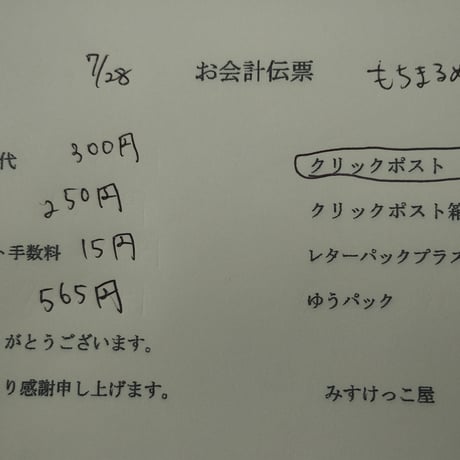 7/28 お会計伝票 もちまるめ
代 300円 クリックポスト
250円 クリックポスト箱
ト手数料 15円 レターパックプラス
565円 ゆうパック
がとうございます。
り感謝申し上げます。 みすけっこ屋